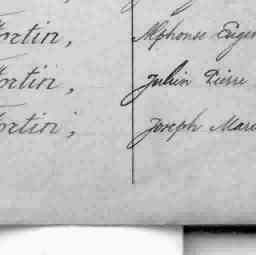 Fortin, Alphonse Eugen
Fortin, Julien Pierre
Fortin, Joseph Marie